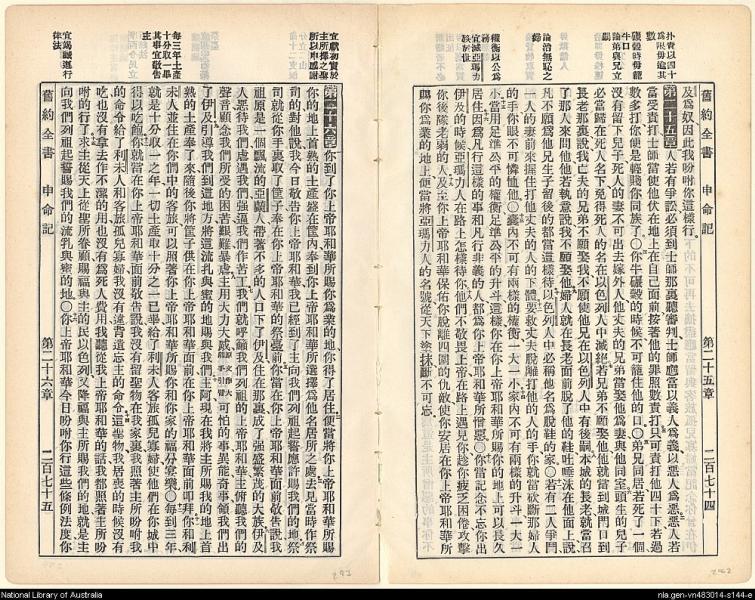 舊約全書 申命記 第二十五章 二百七十四
扑責以四十
爲限毋過其
數
碾穀時毋籠
牛口
論弟與兄立
嗣
論治無恥之
婦
權衡以公爲
務
宜滅亞瑪力
族於世
及爲奴因此我吩咐你這樣行。
第二十五章人若有爭訟必須到士師那裏聽審判士師應當以義人爲義以惡人爲惡惡人若
當受責打士師當使他伏在地上在自己面前按著他的罪照數責打只可責打他四十下若過
數多打你便是輕賤你同族了○你牛碾穀的時候不可籠住他的口○弟兄同居若死了一個
沒有留下兒子死人的妻不可出去嫁外人他丈夫的兄弟當娶他爲妻與他同室頭生的兒子
必當歸在死人名下免得死人的名在以色列人中滅絕若兄弟不願娶他他就當到城門口到
長老那裏說我亡夫的兄弟不願娶我不願使他兄在以色列人中有後嗣本城的長老就當召
了那人來問他他若執意說我不願娶他婦人就在長老面前脫了他的鞋吐唾沫在他面上說
凡不願爲他兄生子留後的都當這樣待以色列人中必稱他名爲脫鞋的家○若有二人爭鬥
一人的妻前來握住打他丈夫的人的下體要救丈夫脫離打他的人的手你就當砍斷那婦人
的手你眼不可憐恤他○囊內不可有兩樣的權衡一大一小家內不可有兩樣的升斗一大一
小當用足準公平的權衡足準公平的升斗這樣你在你上帝耶和華所賜你的地上可以長久
居住因爲凡行這樣的事和凡行非義的人都爲你上帝耶和華所憎惡○你當記念不忘你出
伊及的時候亞瑪力人在路上怎樣待你他們不敬畏上帝在路上遇見你趁你疲乏困倦攻擊
你後隊老弱的人及至你上帝耶和華保佑你脫離四圍的仇敵使你安居在你上帝耶和華所
與你爲業的地上便當將亞瑪力人的名號從天下塗抹斷不可忘。
宜獻初實於
主所擇之聖
所以申感謝
每三年土產
十分取一畢
其事宜敬告
主
宜竭誠遵行
律法
第二十六章你到了你上帝耶和華所賜你爲業的地你得了居住便當將你上帝耶和華所賜
你的地上首熟的土產盛在筐內奉到你上帝耶和華所選擇爲他名居所之處去見當時作祭
司的對他說我今日敬告你上帝耶和華我已經到了主向我們列祖起誓應許賜我們的地祭
司就從你手裏取了筐子奉在你上帝耶和華的祭臺前你當在你上帝耶和華面前敬告說我
祖原是一個飄流的亞蘭人帶著不多的人口下了伊及住在那裏成了強盛繁茂的大族伊及
人惡待我們虐遇我們強逼我們作苦工我們就呼籲我們列祖的上帝耶和華主俯聽我們的
聲音顧念我們所受的困苦艱難暴虐主用大力大能可怕的事異能奇事領我們出
了伊及引導我們到這地方將這流乳與蜜的地賜與我們主阿現在我將主所賜我的地上首
熟的土產奉了來隨後你將筐子供在你上帝耶和華面前在你上帝耶和華面前叩拜你和利
未人並住在你們中的客旅可以照著你上帝耶和華所賜你和你家的福分宴樂○每到三年
就是十分取一之年一切土產取十分之一已畢給了利未人客旅孤兒寡婦使他們在你城中
得以吃飽你就當在你上帝耶和華面前敬告說我沒有留聖物在我家裏我照著主所吩咐我
的命令給了利未人和客旅孤兒寡婦我沒有違背遺忘主的命令這聖物我居喪的時候沒有
吃也沒有拿去作不潔的用也沒有爲死人費用我聽從我上帝耶和華的話我都照著主所吩
咐的行了求主從天上從聖所眷顧賜福與主的民以色列又降福與主所賜我們的地就是主
向我們列祖起誓賜我們的流乳與蜜的地○你上帝耶和華今日吩咐你行這些條例法度你
舊約全書 申命記 第二十六章 二百七十五
National Library of Australia
nla.gen-vn483014-s144-e